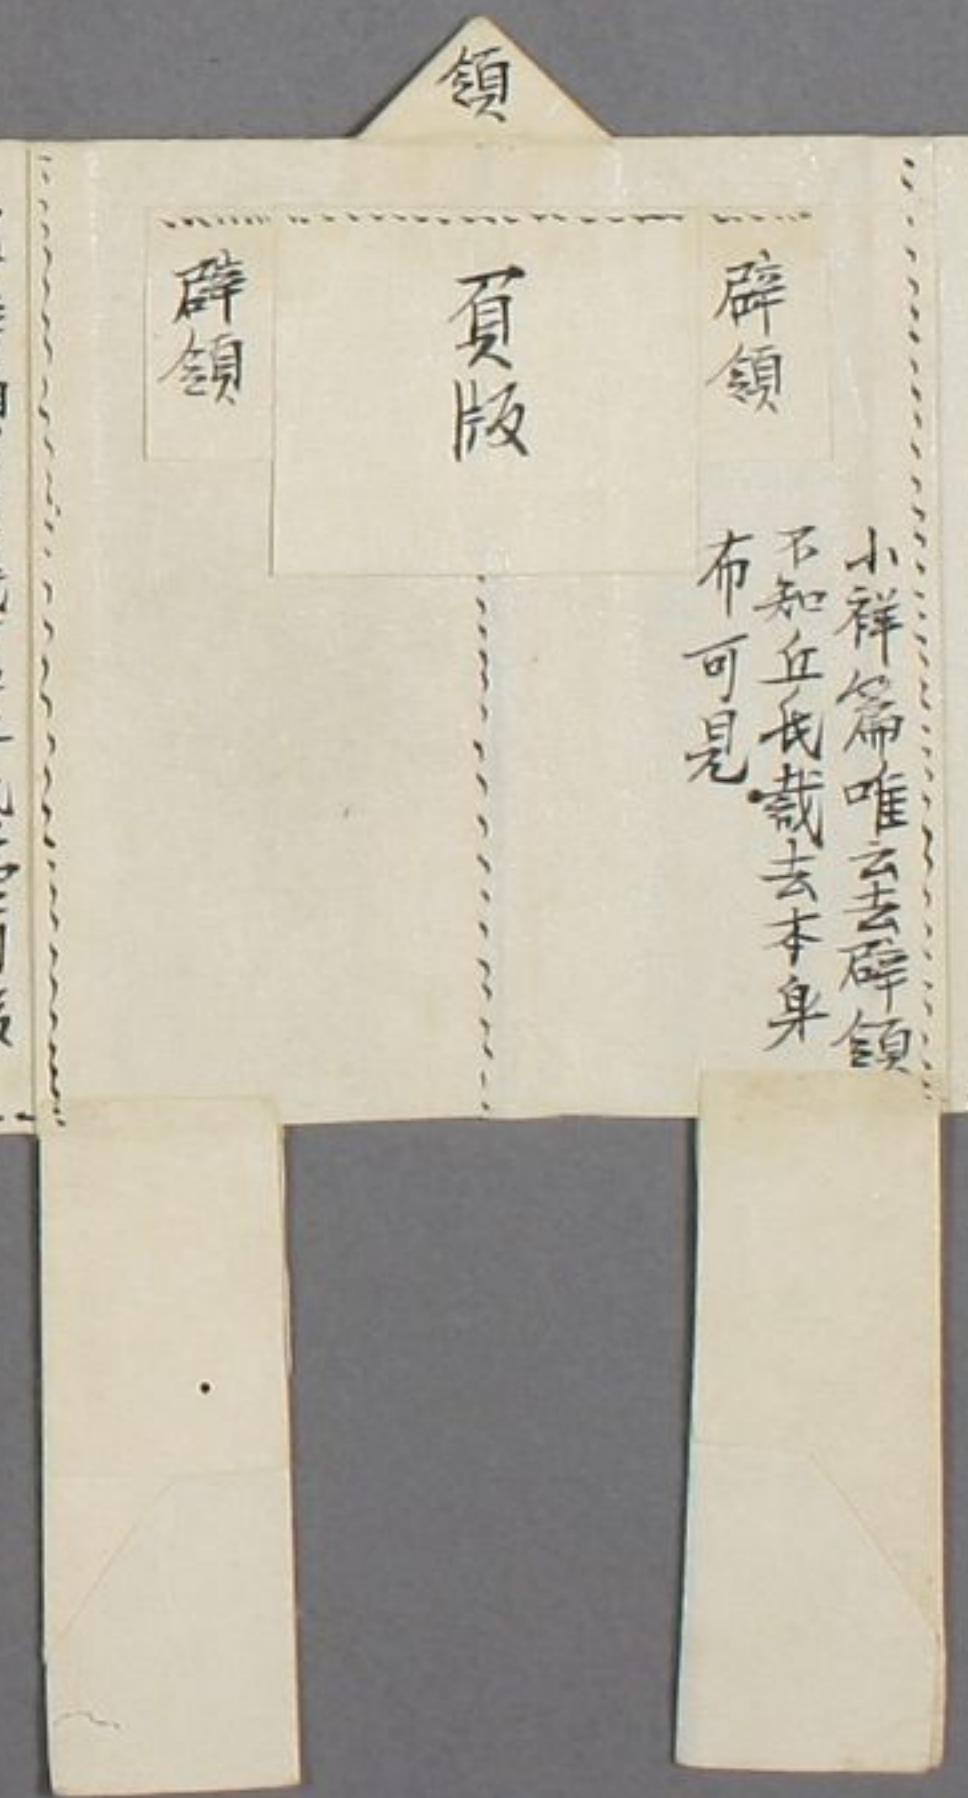 領
辟領
負版
辟領
小祥篇唯云去辟領
不知丘氏裁去本身
布可見